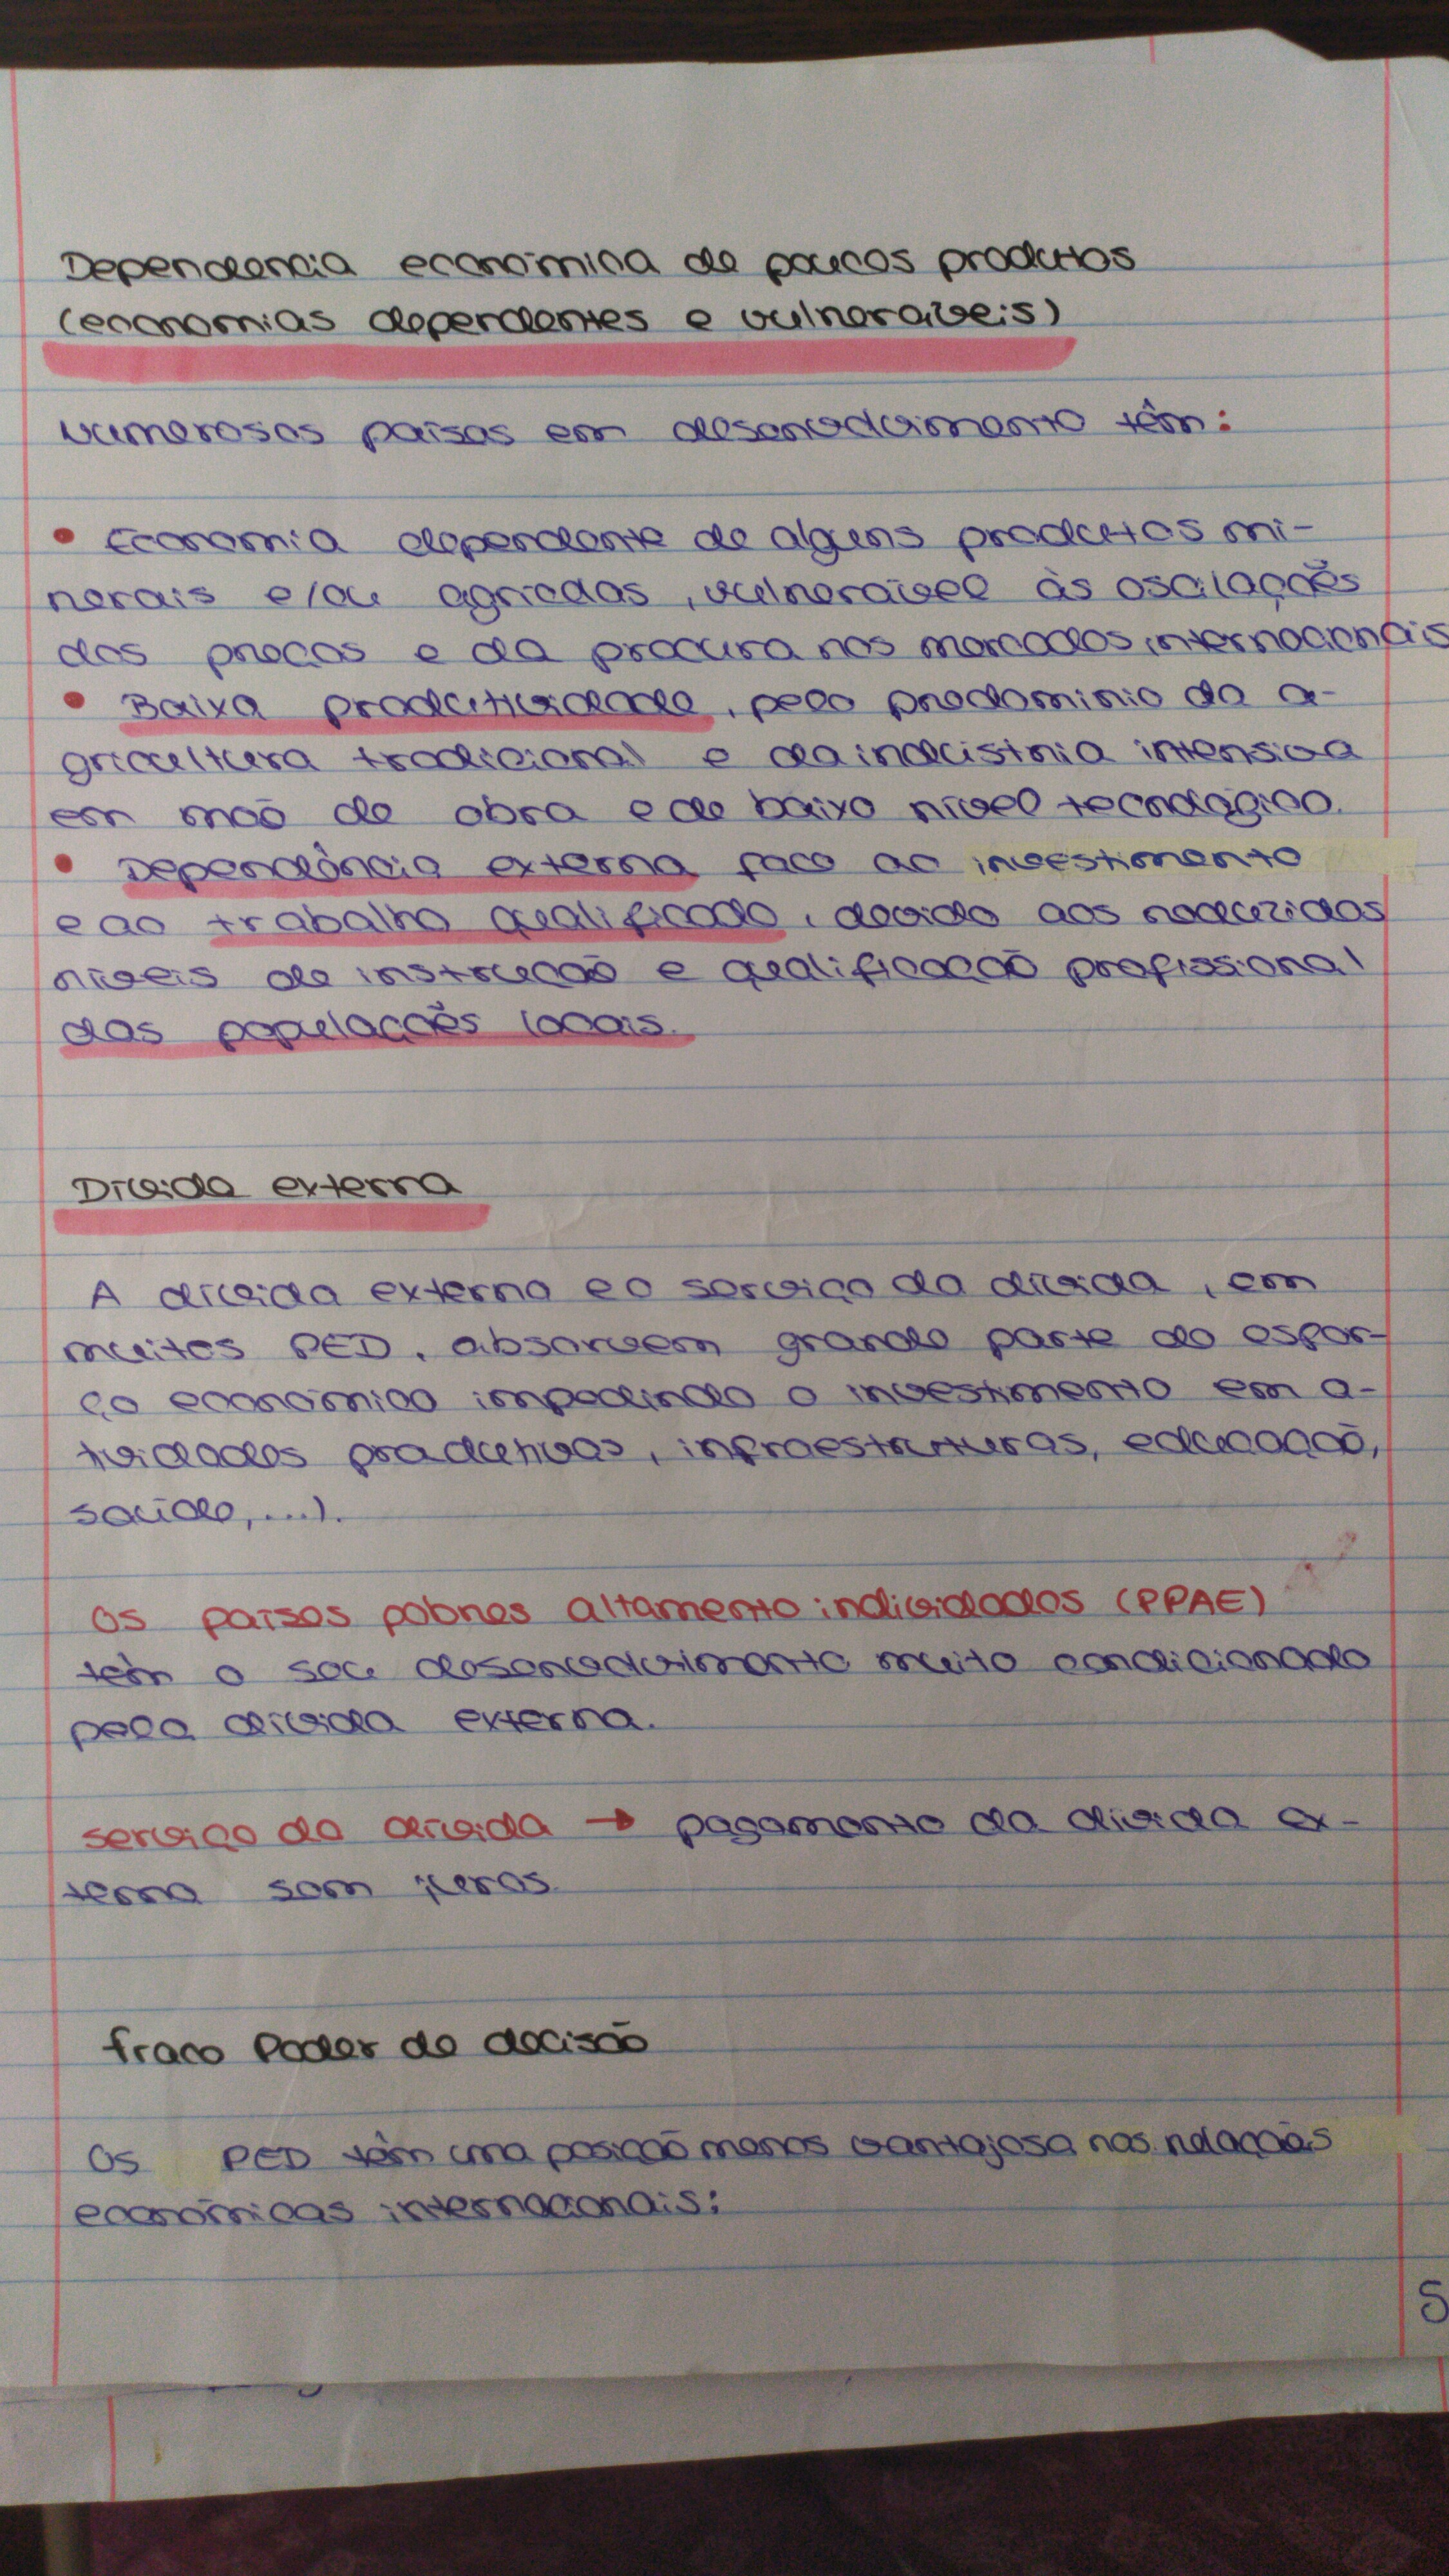 Dependencia económica de poucos produtos
(economias dependentes e vulneráveis)
Numerosos países em desenvolvimento têm:
• Economia dependente de alguns produtos mi-
nerais e/ou agricolas, vulnerável às oscilações
dos preços e da procura nos mercados internacionais
• Baixa produtividade, pelo predominio da a-
gricultura tradicional e da indústria intensiva
em mão de obra e de baixo nível tecnológico.
• Dependência externa face ao investimento
e ao trabalho qualificado, devido aos reduzidos
níveis de instrução e qualificação profissional
das populações locais.
Dívida externa
A dívida externa e o serviço da dívida, em
muitos PED, absorvem grande parte do esfor-
ço económico impedindo o investimento em a-
tividades produtivas, infraestruturas, educação,
saúde,....).
Os países pobres altamente individados (PPAE)
têm o seu desenvolvimento muito condicionado
pela dívida externa.
serviço da dívida → pagamento da dívida ex-
terna sem juros.
fraco Poder de decisão
Os PED têm uma posição menos vantajosa nas relações
económicas internacionais:
5